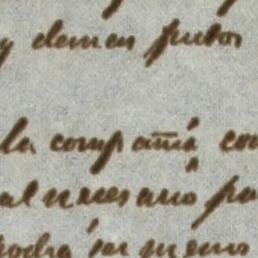 y demas frutos
la compañia co
al necesario pa
podra ser menos